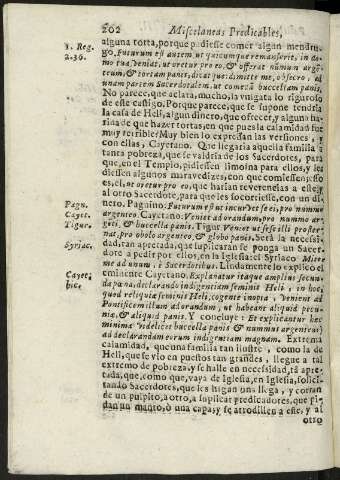 202 Miscelaneas Predicables,
alguna torta, porque pudiesse comer algun mendru-
1. Reg. 2.36.
go. Futurum est autem ut quicumque remanserit, in do-
mo tua veniat, ut oretur pro eo, & offerat nūmum argē-
teum, & tortam panis, dicatque: dimitte me, obsecro, ad
unam partem Sacerdotalem, ut comedā buccellam panis,
No parece, que aclara, mucho, la vulgata lo riguroso
de este castigo. Porque parece, que se supone tendria
la casa de Heli, algun dinero, que ofrecer, y alguna ha-
rina de que hazer tortas, en que pues la calamidad fue
muy terrible? Muy bien lo expressan las versiones, y
con ellas, Cayetano. Que llegaria aquella familia à
tanta pobreza, que se valdria de los Sacerdotes, para
que, en el Templo, pidiessen limosna para ellos, y les
diessen algunos maravedizes, con que comiessen; esso
es, el, ut oretur pro eo, que harian reverencias a este, y
al otro Sacerdote, para que les socorriesse, con un di-
Pagn.
nero. Pagnino. Futurum est ut incurvet se ei, pro nummo
Cayet.
argenteo. Cayetano. Veniet adorandum, pro nummo ar-
Tigur.
geti, & buccella panis. Tigur. Veniet ut sese illi proster-
nat, pro obolo argenteo, & globo panis. Será la necessi-
dad, tan apretada, que suplicaran se ponga un Sacer-
Syriac.
dote a pedir por ellos, en la Iglesia: el Syriaco: Mitte
me ad unum, è Sacerdotibus. Lindamente lo explicò el
Cayet, hic.
eminente Cayetano. Explanatur itaque amplius secun-
da pœna, declarando indigentiam seminis Heli, in hoc,
quod reliquia seminis Heli, cogente inopia, venient ad
Pontificem illum adorandum, ut habeant aliquid pecu-
nia, & aliquid panis. Y concluye: Et explicantur hæc
minima (videlicet buccella panis & nummus argenteus)
ad declarandam eorum indigentiam magnam. Extrema
calamidad, que una familia tan ilustre, como la de
Heli, que se viò en puestos tan grandes, llegue a tal
extremo de pobreza, y se halle en necessidad, tā apre-
tada, que, como que, vaya de Iglesia, en Iglesia, solici-
tando Sacerdotes, que les hagan una llega, y corran
de un pulpito, a otro, a suplicar predicadores, que pi-
dan un manto, ò una capa, y se arrodillen a este, y al
otro